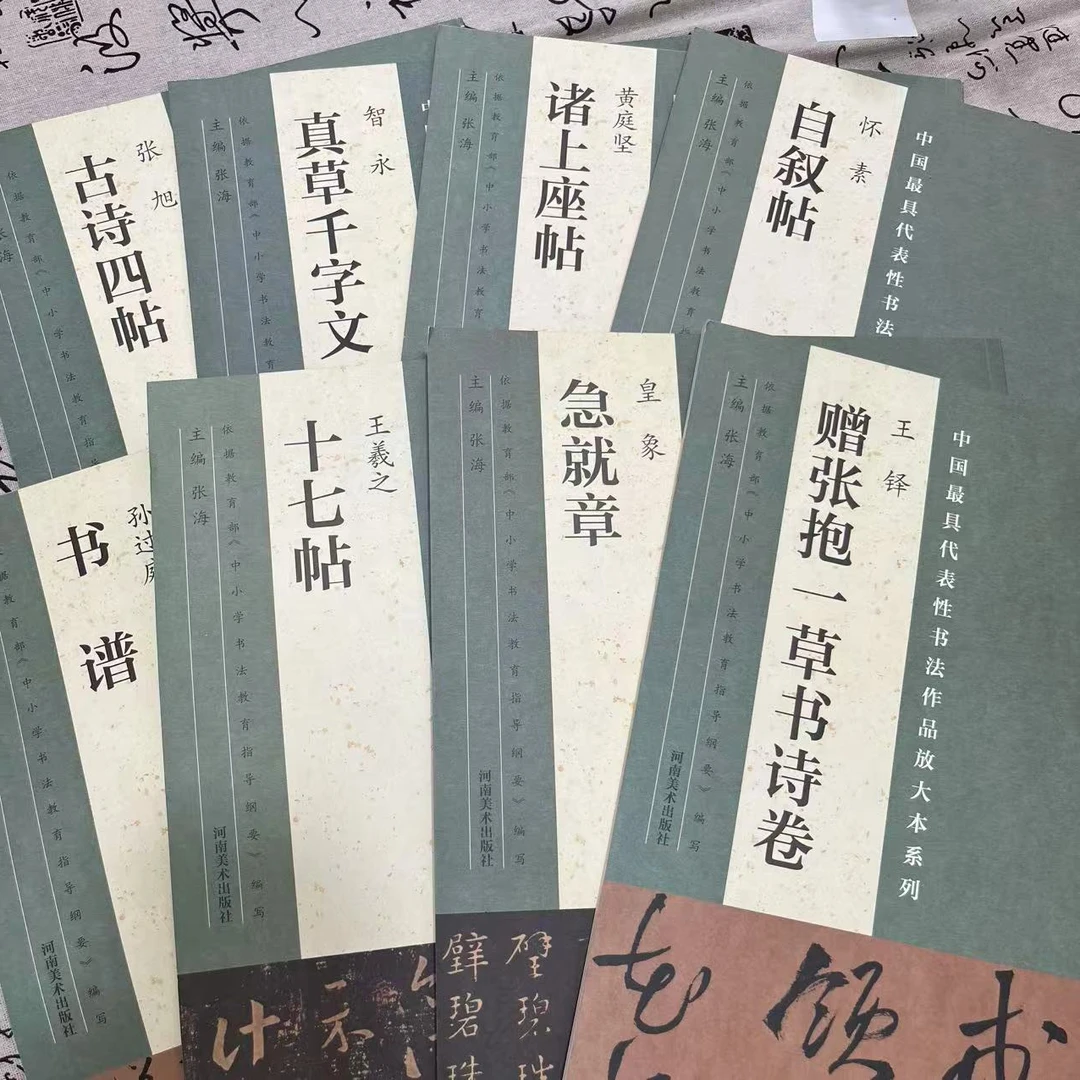 张旭
古诗四帖
依据教育部《中小学书法教育指
张海
智永
真草千字文
依据教育部《中小学书法教育
主编 张海
黄庭坚
诸上座帖
依据教育部《中小学书法教育
主编 张海
怀素
自叙帖
依据教育部《中小学书法教育
主编 张海
中国最具代表性书法
孙过庭
书谱
教育部《中小学书法教育指导纲要》编写
河南美术出版社
王羲之
十七帖
依据教育部《中小学书法教育指导纲要》编写
主编 张海
河南美术出版社
皇象
急就章
依据教育部《中小学书法教育指导纲要》编写
主编 张海
河南美术出版社
璧碧珠
璧碧珠
王铎
赠张抱一草书诗卷
依据教育部《中小学书法教育指导纲要》编写
主编 张海
河南美术出版社
中国最具代表性书法作品放大本系列